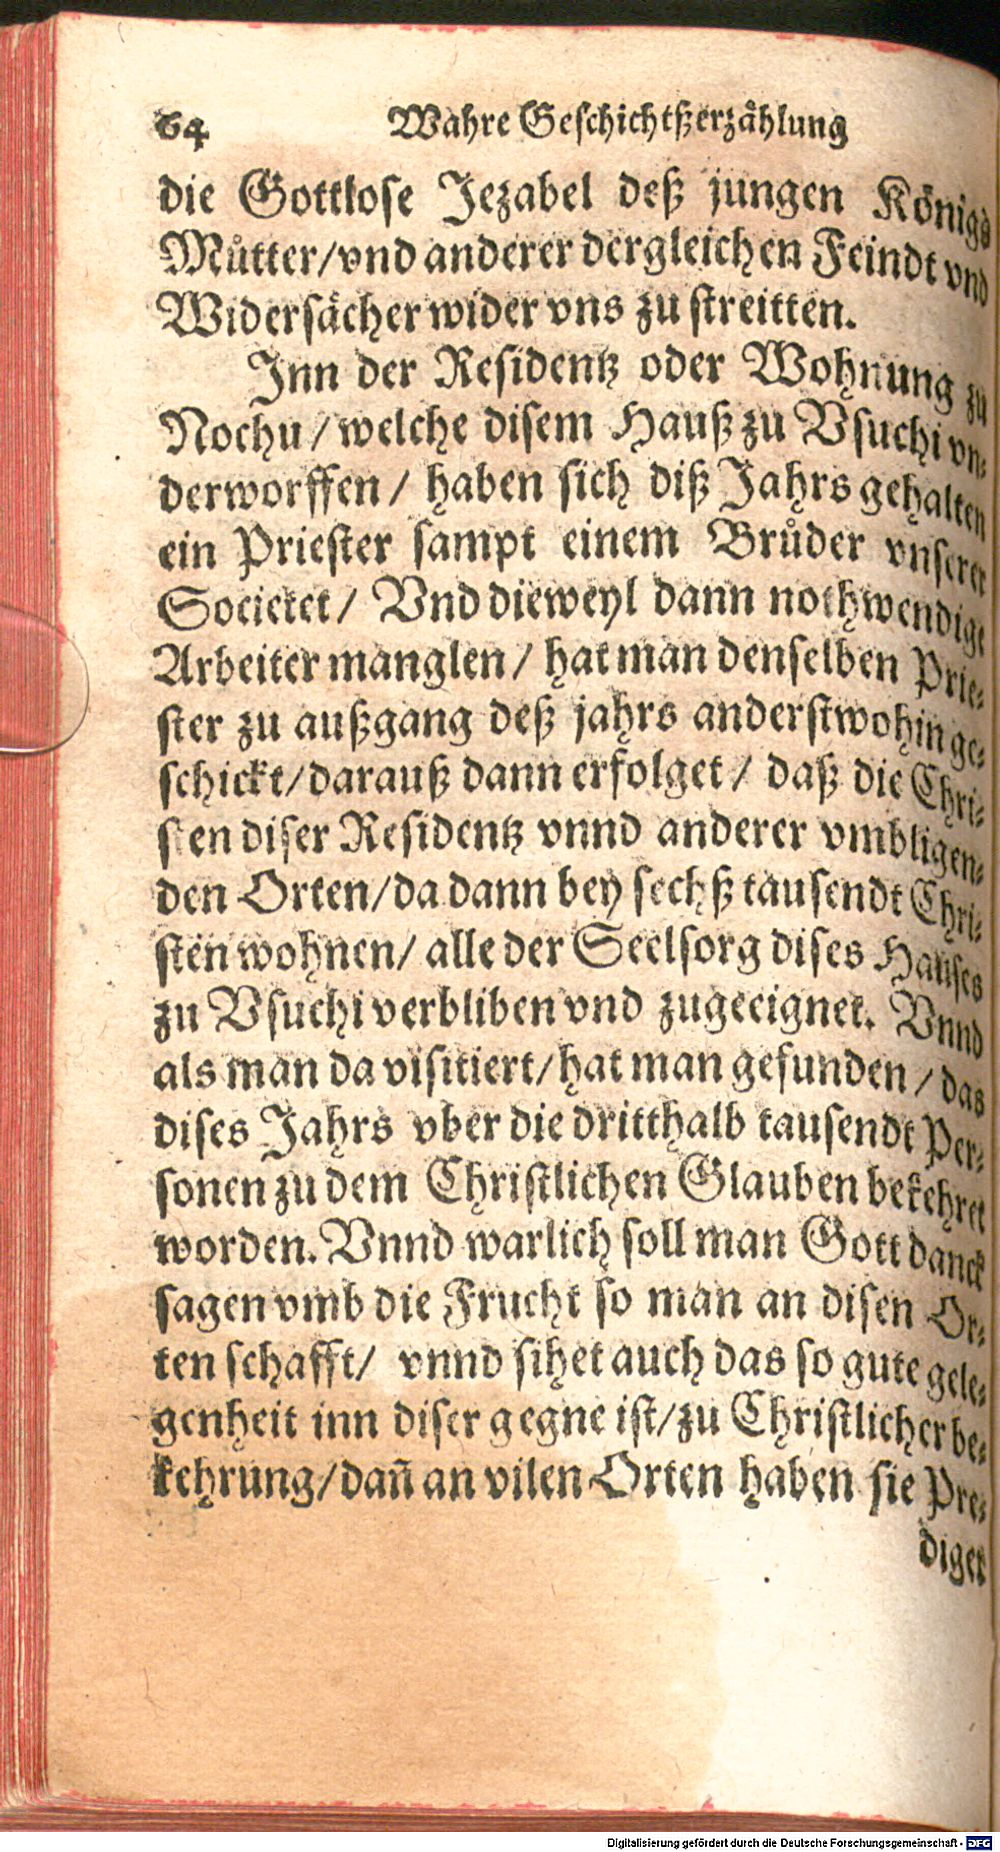 64 Wahre Geschichtßerzåhlung
die Gottlose Jezabel deß jungen Königs
Můtter/vnd anderer dergleichen Feindt vnd
Widersächer wider vns zu streitten.
Inn der Residentz oder Wohnung zu
Nochu/welche disem Hauß zu Vsuchi vn-
derworffen/ haben sich diß Jahrs gehalten
ein Priester sampt einem Brůder vnserer
Societet/ Vnd dieweyl dann nothwendige
Arbeiter manglen/ hat man denselben Prie-
ster zu außgang deß jahrs anderstwohin ge-
schickt/darauß dann erfolget/ daß die Chri-
sten diser Residentz vnnd anderer vmbligen-
den Orten/da dann bey sechß tausendt Chri-
sten wohnen/ alle der Seelsorg dises Hauses
zu Vsuchi verbliben vnd zugeeignet. Vnnd
als man da visitiert/hat man gefunden/das
dises Jahrs vber die dritthalb tausendt Per-
sonen zu dem Christlichen Glauben bekehret
worden. Vnnd warlich soll man Gott danck
sagen vmb die Frucht so man an disen Or-
ten schafft/ vnnd sihet auch das so gute gele-
genheit inn diser gegne ist/zu Christlicher be-
kehrung/dañ an vilen Orten haben sie Pre-
diger
Digitalisierung gefördert durch die Deutsche Forschungsgemeinschaft - DFG